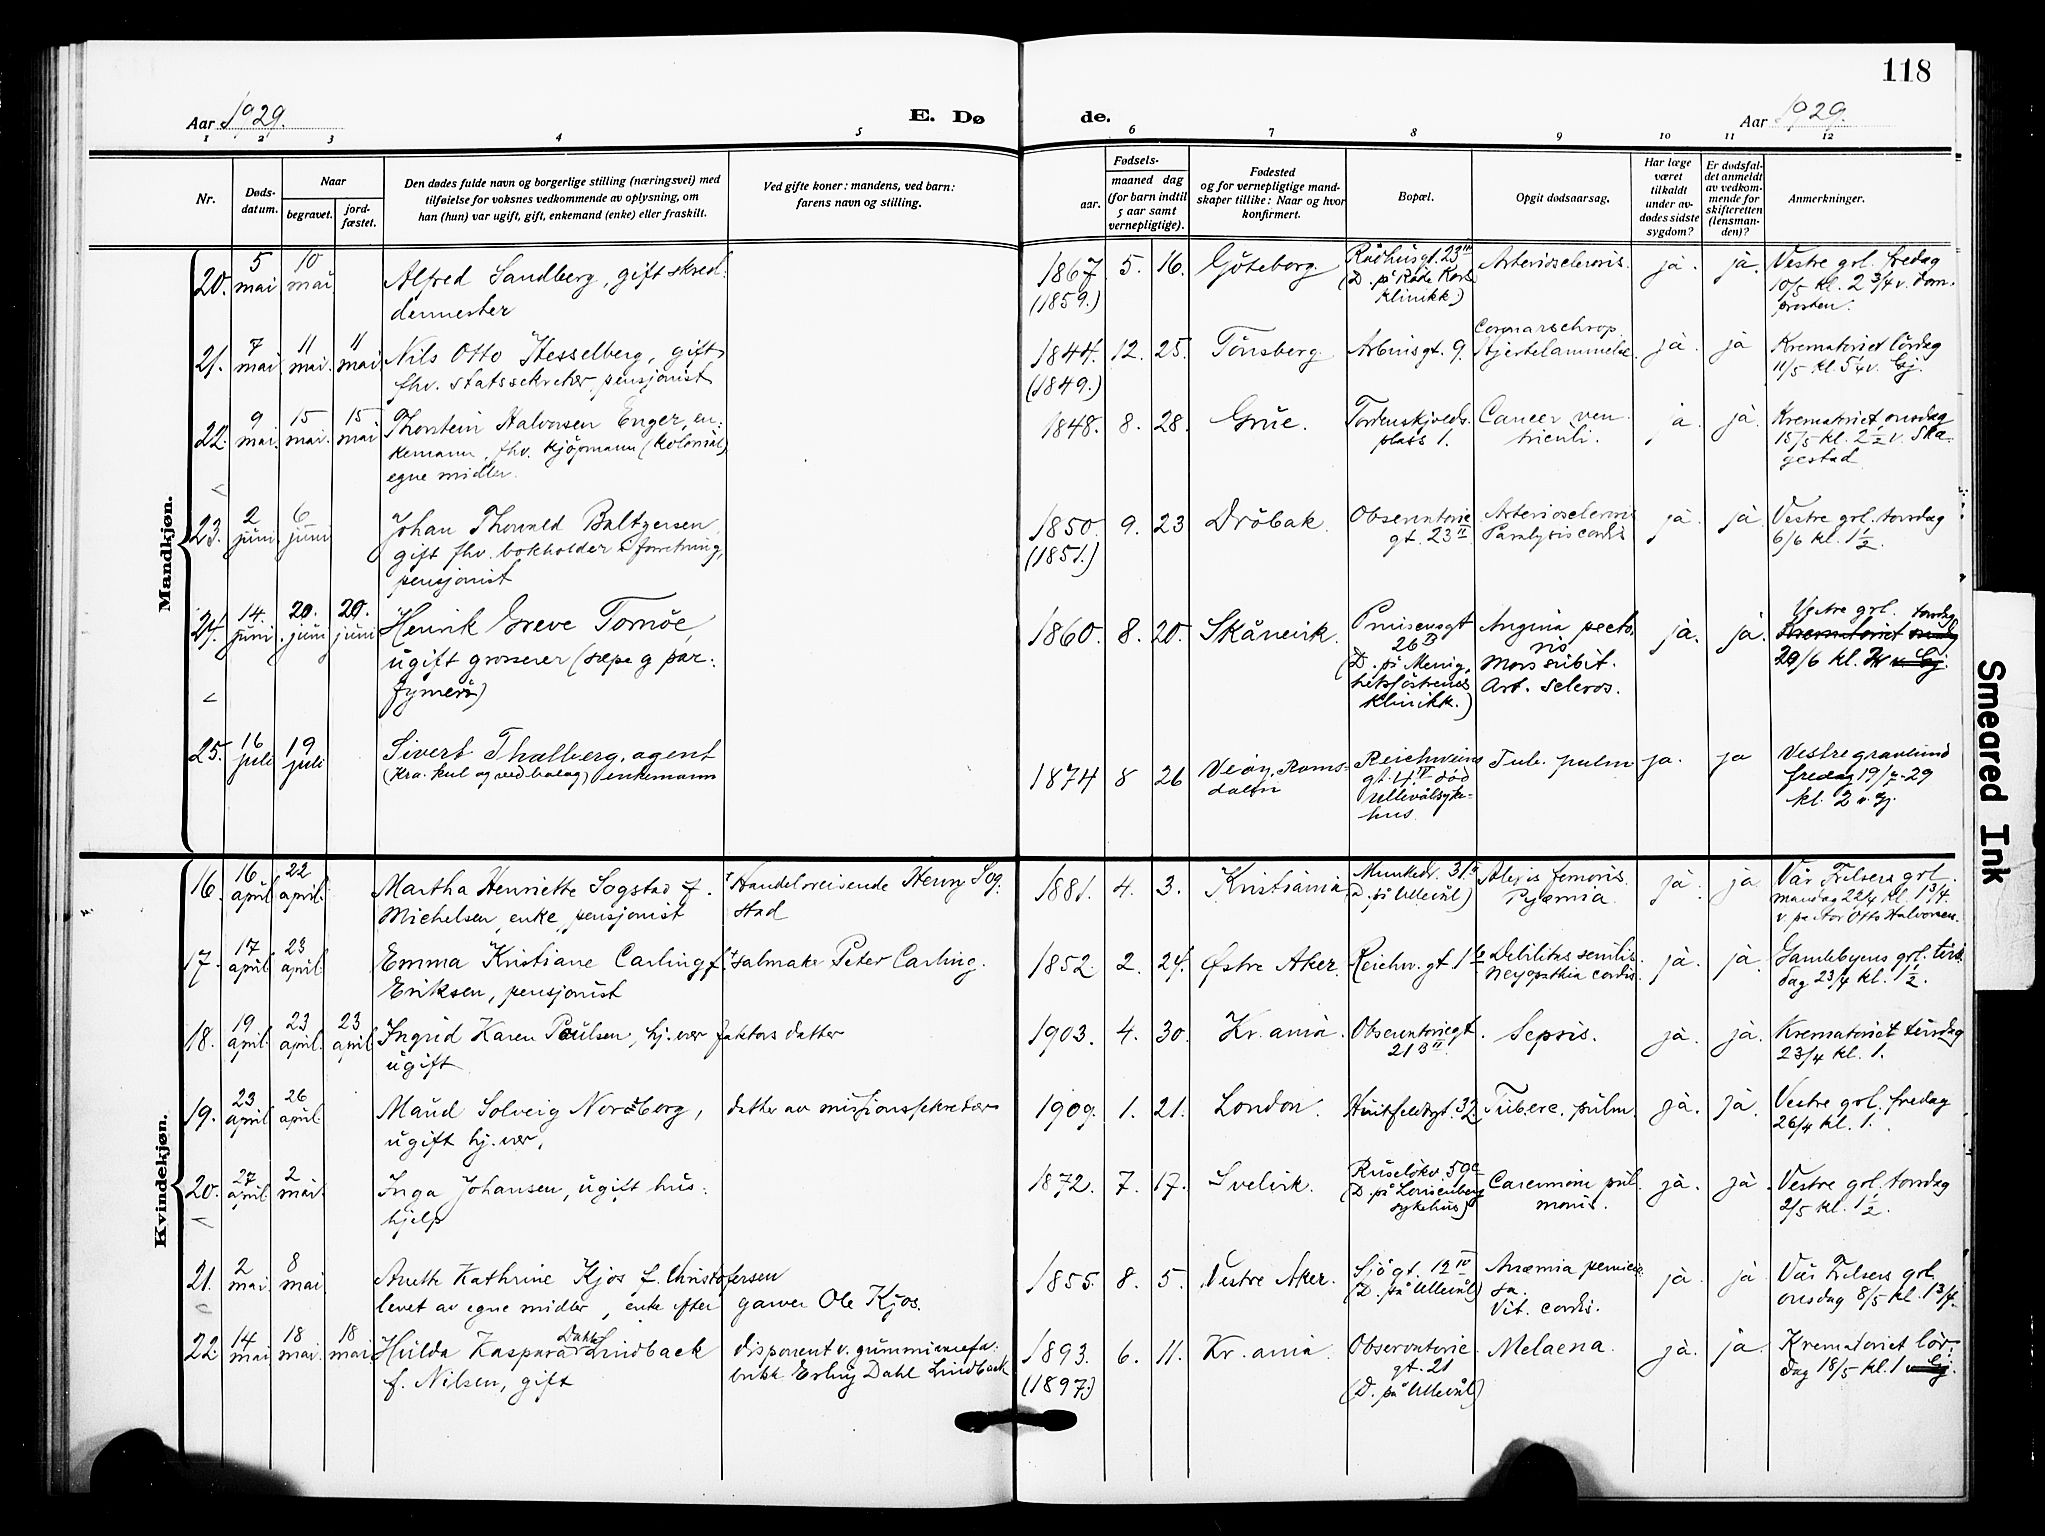 118
Aar 1929.
E. Dø
de.
Aar 1929.
1 2 3 4 5 6 7 8 9 10 11 12
Nr.
Døds-
datum.
Naar
begravet.
jord-
fæstet.
Den dødes fulde navn og borgerlige stilling (næringsvei) med
tilføielse for voksnes vedkommende av oplysning, om
han (hun) var ugift, gift, enkemand (enke) eller fraskilt.
Ved gifte koner: mandens, ved barn:
farens navn og stilling.
Fødsels-
aar.
maaned dag
(for barn indtil
5 aar samt
vernepligtige).
Fødested
og for vernepligtige mand-
skaper tillike: Naar og hvor
konfirmert.
Bopæl.
Opgit dødsaarsag.
Har læge
været
tilkaldt
under av-
dødes sidste
sygdom?
Er dødsfal-
det anmeldt
av vedkom-
mende for
skifteretten
(lensman-
den)?
Anmerkninger.
Mandkjøn.
20. 5 mai 10 mai Alfred Sandberg, gift skred-
dermester
1867 (1859.) 5. 16. Göteborg. Rådhusgt. 23 III
(D. på Røde Kors
klinikk)
Arteriosclerosis. ja. ja. Vestre grl. fredag
10/5 kl. 2 3/4 v. dom-
prosten.
21. 7 mai 11 mai. 11 mai. Nils Otto Hesselberg, gift
fhv. statssekretær, pensjonist
1844. (1849.) 12. 25. Tönsberg. Arbinsgt. 9.
Hjertelammelse. ja. ja Krematoriet lördag
11/5 kl. 5 1/4 v. Gj.
22. 9 mai. 15 mai. 15 mai Thorstein Halvorsen Enger, en-
kemann, fhv. kjöpmann (kolonial)
egne midler.
1848. 8. 28. Grue. Tordenskjolds
plass 1.
Cancer ven-
triculi.
ja. ja. Krematoriet, onsdag
15/5 kl. 2 1/2 v. Ska-
gestad
23. 2 juni 6 juni Johan Thorvald Baltzersen
gift fhv. bokholder i forretning,
pensjonist
1850. (1851.) 9. 23 Dröbak. Observatorie
gt. 23 II
Arteriosclerosis
Paralysis cordis
ja. ja. Vestre grl. torsdag
6/6 kl. 1 1/2.
24. 14. juni 20. juni 20. juni Henrik Greve Tornöe,
ugift grosserer (sæpe og par-
fymeri)
1860. 8. 20. Skånevik. Pruisensgt
26 II
(D. på Menig-
hetssöstrenes
klinikk.)
Angina pecto-
ris
Mors subit.
Art. scleros.
ja. ja. Vestre grl. torsdag
Krematoriet
20/6 kl. v. Gj.
25. 16 juli 19 juli Sivert Thalberg, agent
(Kra. kul og vedbolag) enkemann
1874 8 26 Veöy, Roms-
dalen
Reichweins
gt. 4 IV död
Ullevålsyke-
hus.
Tub. pulm ja. ja Vestre gravlund
fredag 19/7-29
kl. 2 v. Gj.
Kvindekjøn.
16. 16 april 22 april. Martha Henriette Sogstad f.
Michelsen, enke, pensjonist
Handelsreisende Henry Sog-
stad
1881. 4. 3. Kristiania Munkedv. 31 II
(D. på Ullevål)
femoris.
Pyæmia.
ja. ja Vår Frelsers grl.
mandag 22/4 kl. 1 3/4.
v. pastor Otto Halvorsen.
17. 17 april 23 april. Emma Kristiane Carling f.
Eriksen, pensjonist
salmaker Peter Carling.
1852 2. 24. Østre Aker. Reichw. gt 1
Debilitas senilis
Myopathia cordis.
ja. ja. Gamlebyens grl. tirs-
dag 23/4 kl. 1 1/2.
18. 19 april. 23 april. 23 april Ingrid Karen Paulsen, hj. vær faktors datter
ugift
1903. 4. 30. Kr.ania. Observatoriegt
21 3 II.
Sepsis. ja. ja. Krematoriet tirsdag
23/4 kl. 1.
19. 23 april 26 april. Maud Solveig Nordborg,
ugift hj. vær,
datter av misjonssekretær
1909. 1. 21. London. Huitfeldtsgt. 32. Tuberc. pulm. ja. ja. Vestre grl. fredag
26/4 kl. 1.
20. 27 april. 2 mai. Inga Johansen, ugift hus-
hjelp
1872. 7. 17. Svelvik. Ruselökv. 59
(D. på Lovisenberg
sykehus)
pul-
monis.
ja. ja. Vestre grl. torsdag
2/5 kl. 1 1/2.
21. 2 mai. 8 mai Anette Kathrine Kjos f. Christofersen
levet av egne midler, enke efter garver Ole Kjos.
1855. 8. 5. Vestre Aker. Sjögt. 12 IV
(D. på Ullevål)
Anæmia pernicio-
sa.
Vit. cordis.
ja. ja Vår Frelsers grl.
onsdag 8/5 kl. 1 3/4.
22. 14 mai 18 mai. 18 mai Hilda Kaspara Dahl Lindback
f. Nilsen, gift
disponent v. gummivarefa-
brikk Erling Dahl Lindback
1893. (1897.) 6. 11. Kr.ania. Observatorie
gt. 21
(D. på Ullevål)
Melaena. ja. ja. Krematoriet lör-
dag 18/5 kl. 1 v. Gj.
Smeared Ink